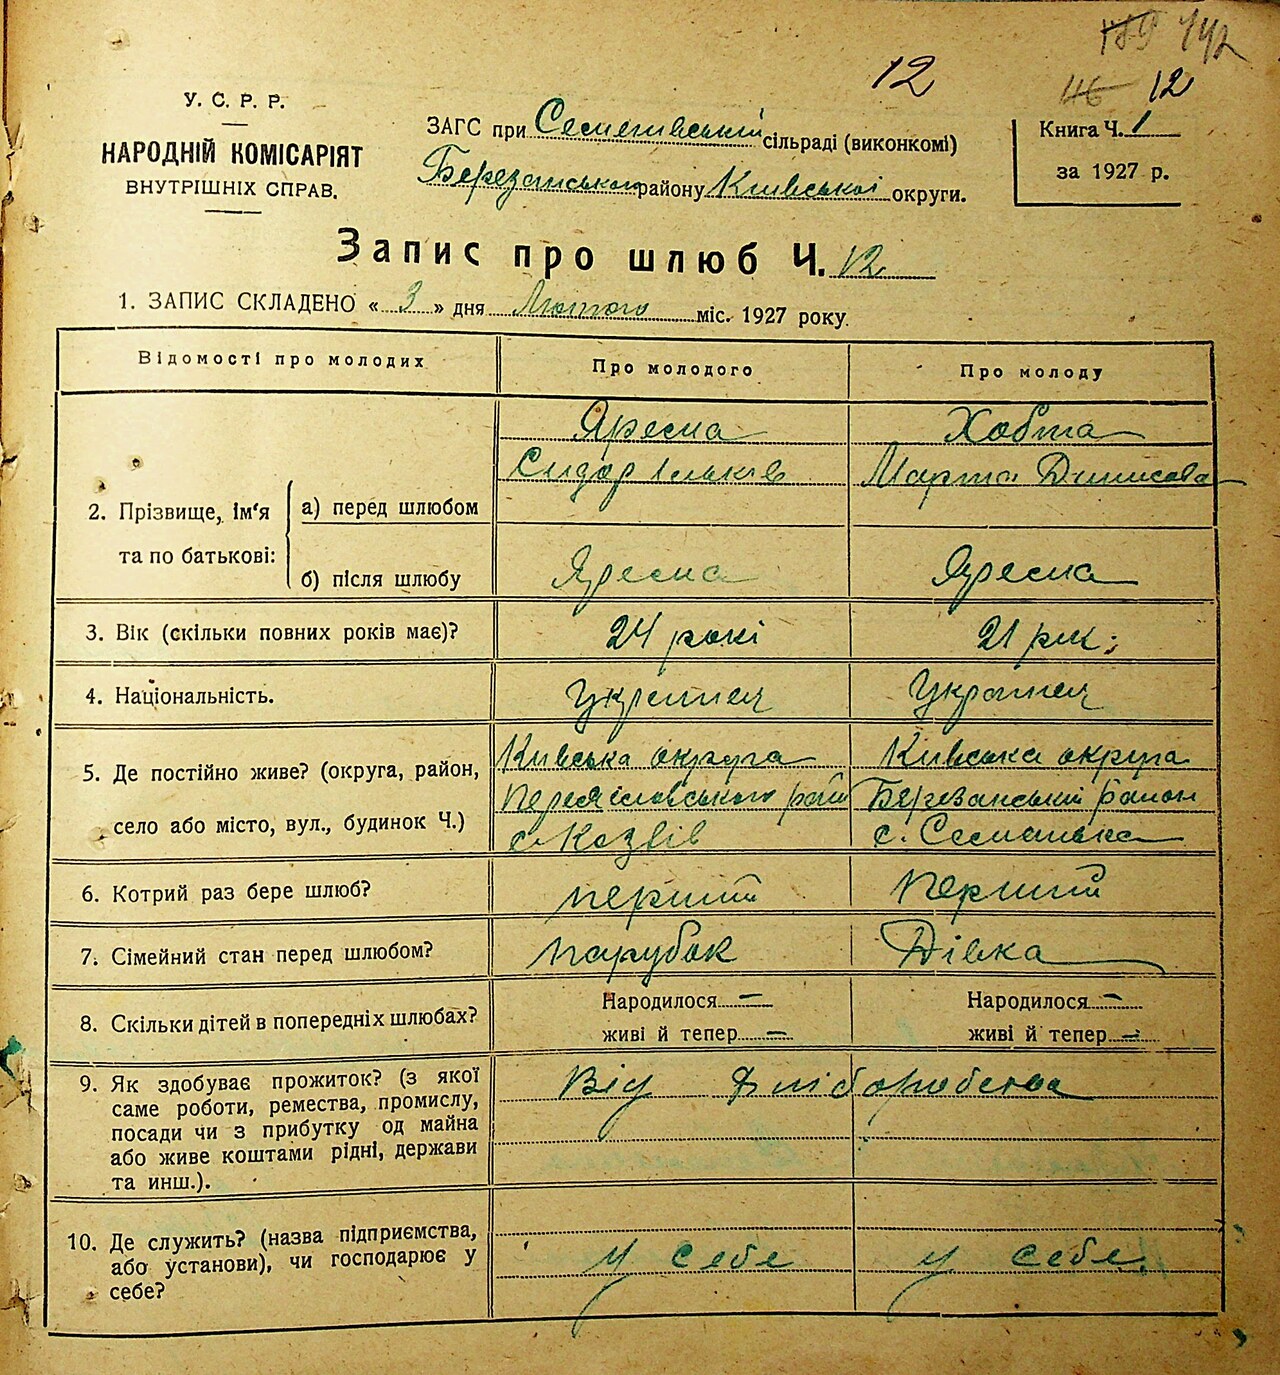 442
12
46 12
У. С. Р. Р.
НАРОДНІЙ КОМІСАРІЯТ
ВНУТРІШНІХ СПРАВ.
ЗАГС при Семенівський сільраді (виконкомі)
Березанського району Київської округи.
Книга Ч. 1
за 1927 р.
Запис про шлюб Ч. 12
1. ЗАПИС СКЛАДЕНО « 3 » дня Лютого міс. 1927 року.
Відомості про молодих Про молодого Про молоду
Яресна Хобта
Сидор Ільків Марта Динисова
2. Прізвище, ім'я та по батькові:
а) перед шлюбом
б) після шлюбу Яресна Яресна
3. Вік (скільки повних років має)? 24 рокі 21 рик;
4. Національність. Українец Украинец
5. Де постійно живе? (округа, район, село або місто, вул., будинок Ч.)
Київська округа Київська округа
Переяславського рай Березанський район
с. Козлів с. Семанівка
6. Котрий раз бере шлюб? перший Перший
7. Сімейний стан перед шлюбом? парубок Дівка
8. Скільки дітей в попередніх шлюбах? Народилося — Народилося —
живі й тепер — живі й тепер —
9. Як здобуває прожиток? (з якої Від хліборобства
саме роботи, ремества, промислу,
посади чи з прибутку од майна
або живе коштами рідні, держави
та инш.).
10. Де служить? (назва підприємства,
або установи), чи господарює у у себе у себе.
себе?